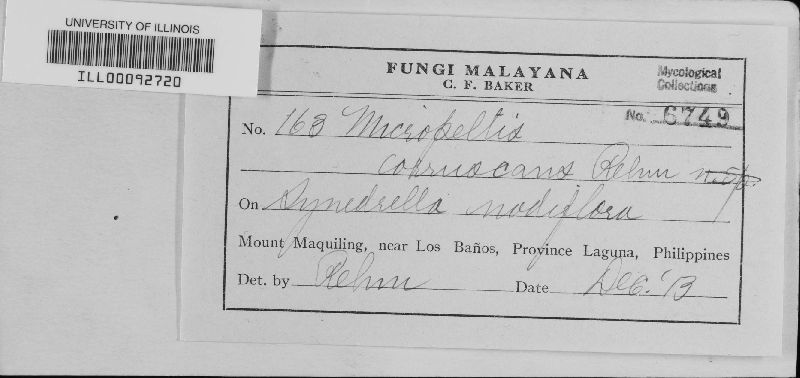 UNIVERSITY OF ILLINOIS
ILL00092720
FUNGI MALAYANA
C. F. BAKER
Mycological
Collections
No. 6749
No. 163 Micropeltis
coruscans Rehm n.sp.
On Synedrella nodiflora
Mount Maquiling, near Los Baños, Province Laguna, Philippines
Det. by Rehm Date Dec. '13